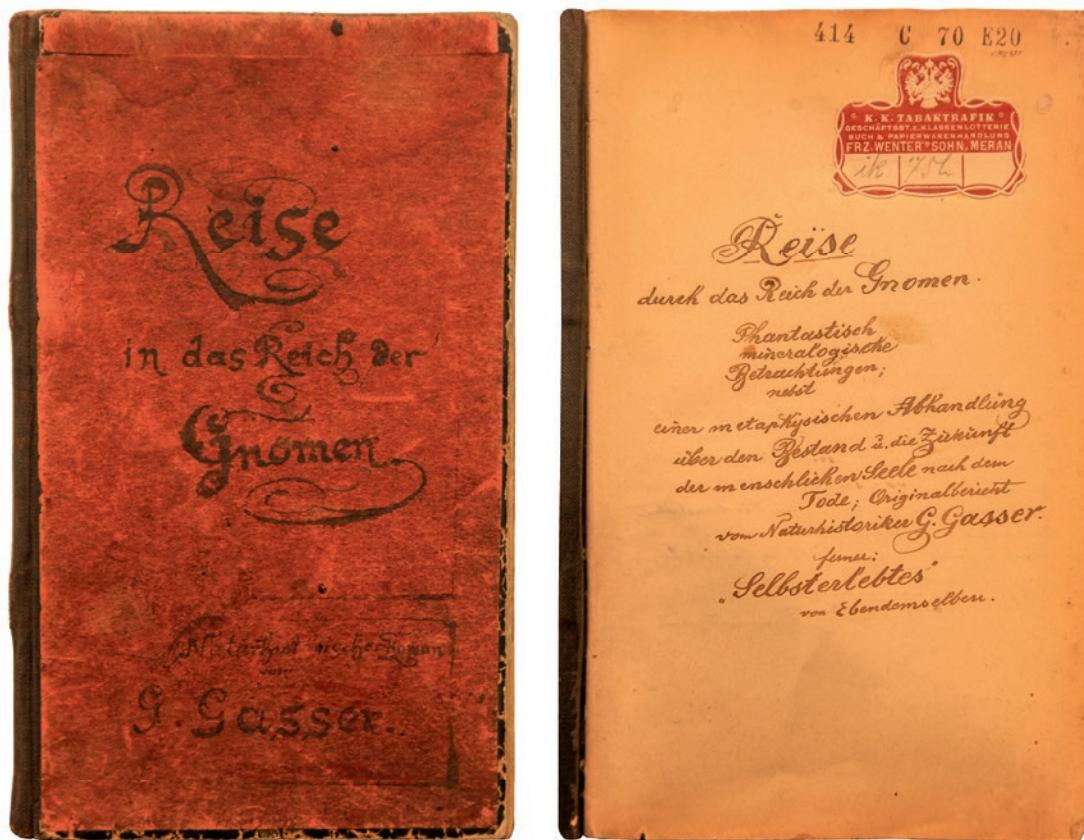 Reise
in das Reich der
Gnomen.
Naturhist ischer Roman
von
G. Gasser.
414 C 70 E20
K. K. TABAKTRAFIK
GESCHÄFTSST. D. KLASSENLOTTERIE
BUCH & PAPIERWARENHANDLUNG
FRZ. WENTER'S SOHN, MERAN
Reise
durch das Reich der Gnomen.
Phantastisch
mineralogische
Betrachtungen;
nebst
einer metaphysischen Abhandlung
über den Bestand u. die Zukunft
der menschlichen Seele nach dem
Tode; Originalbericht
vom Naturhistoriker G. Gasser.
ferner:
"Selbsterlebtes"
von Ebendemselben.